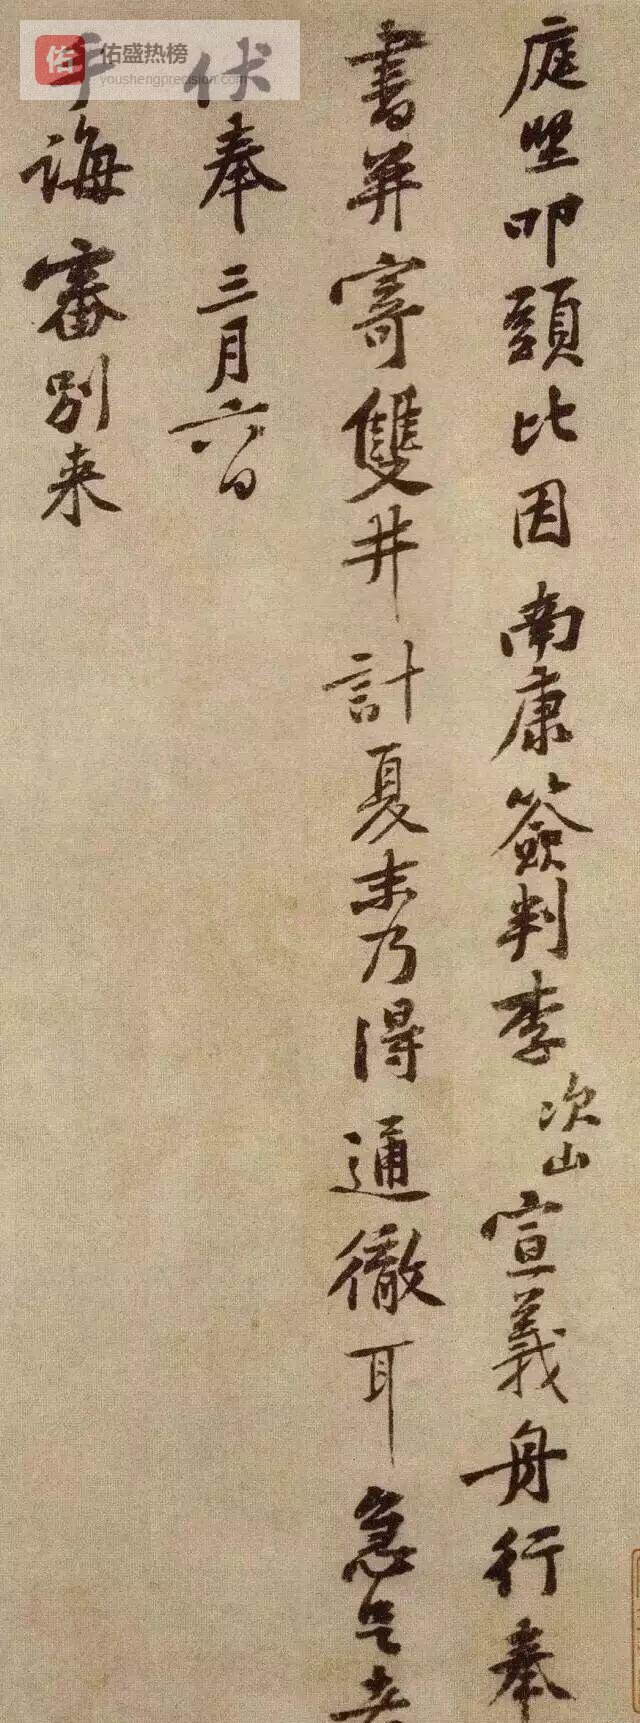 庭堅叩頭比因南康簽判李次山宣義舟行奉
書并寄雙井計夏末乃得通徹耳急足
伏奉三月六日
手誨審別来
佑
佑盛热榜
youshengprecision.com